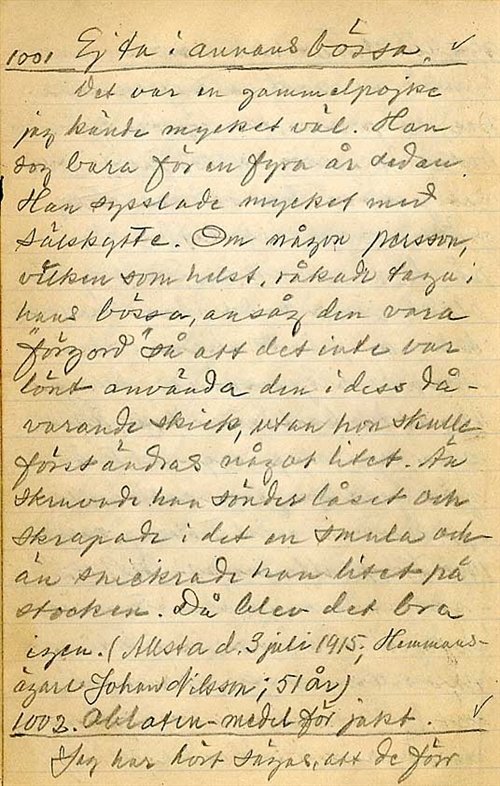 1001 Ej ta i annans bössa. ✓
Det var en gammelpojke
jag kände mycket väl. Han
dog bara för en fyra år sedan.
Han sysslade mycket med
sälskytte. Om någon person,
vilken som helst, råkade taga i
hans bössa, ansåg den vara
"förgord" så att det inte var
lönt använda den i dess då-
varande skick, utan hon skulle
först ändras något litet. Än
skruvade han sönder låset och
skrapade i det en smula och
än snickrade han litet på
stocken. Då blev det bra
igen. (Allsta d. 3 juli 1915; Hemmans-
ägare Johan Nilsson; 51 år)
1002. Oblaten-medel för jakt. ✓
Jag har hört sägas, att de förr